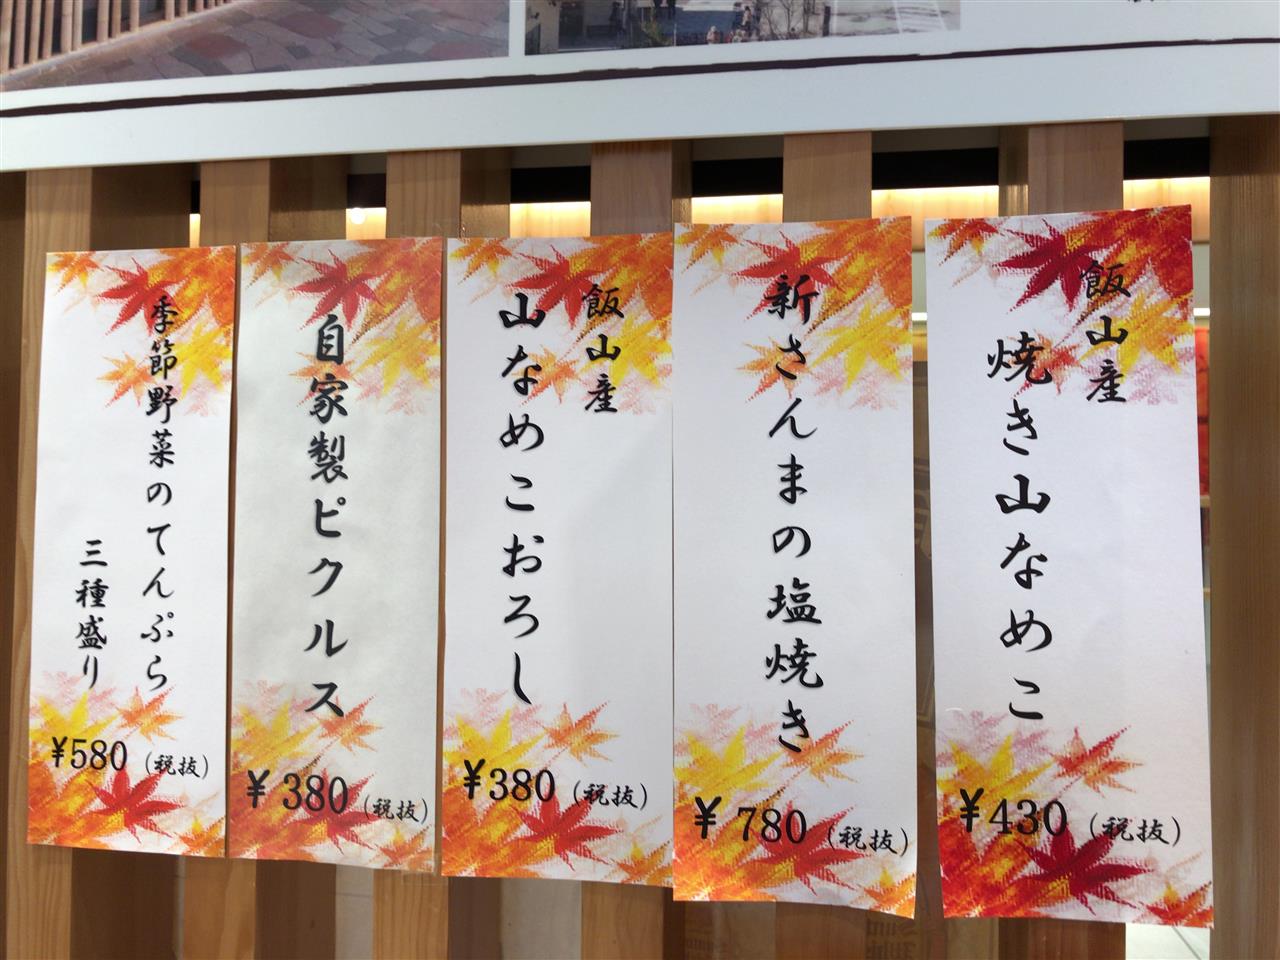 飯山産
焼き山なめこ
¥430（税抜）
新さんまの塩焼き
¥780（税抜）
飯山産
山なめこおろし
¥380（税抜）
自家製ピクルス
¥380（税抜）
季節野菜のてんぷら
三種盛り
¥580（税抜）